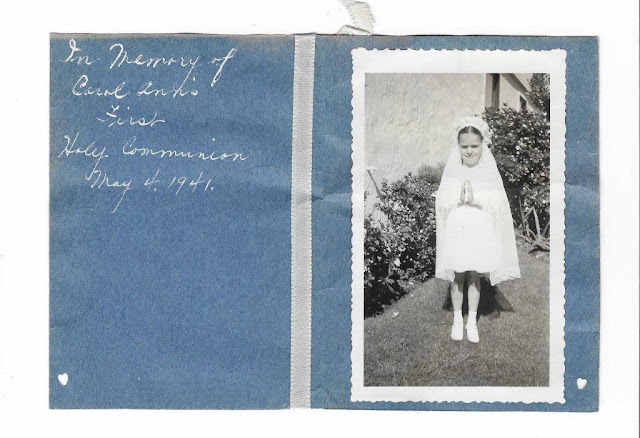 In Memory of
Carol Ann's
First
Holy Communion
May 4, 1941.